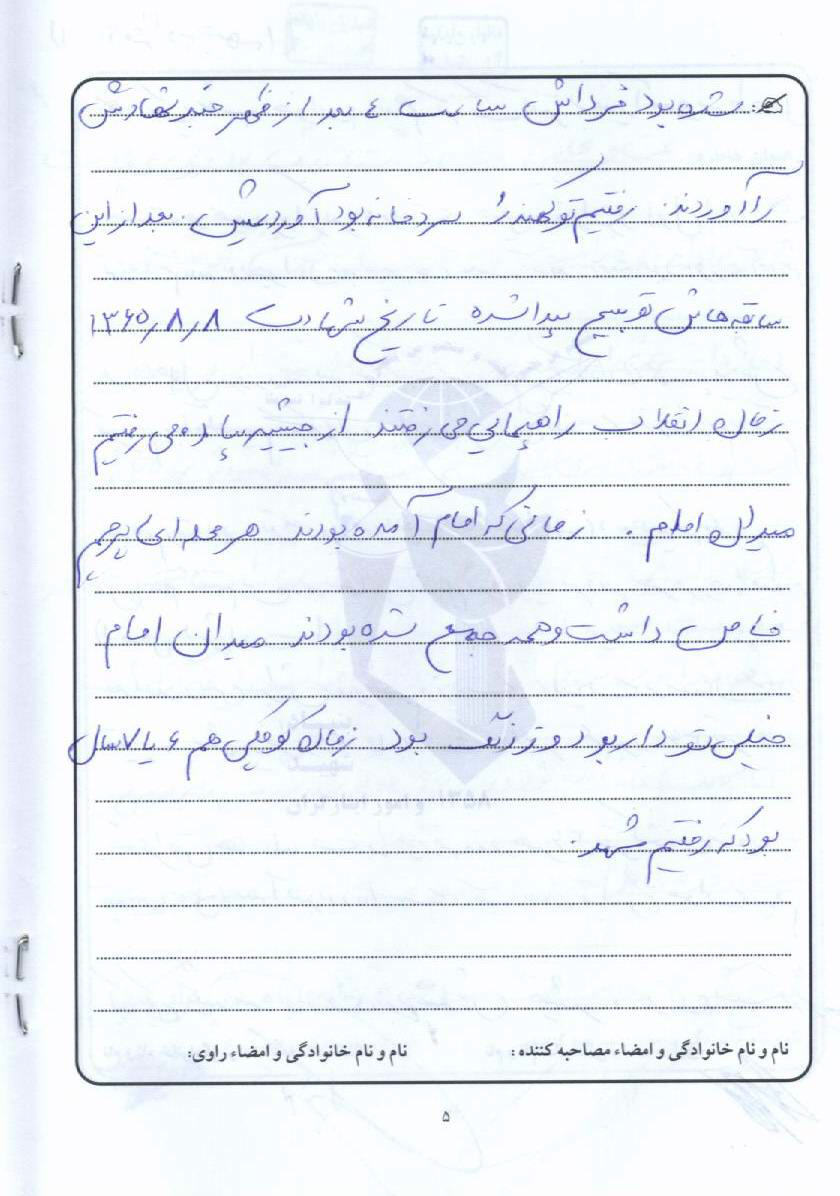 شده بود فرداش ساعت ٤ بعد از ظهر خبر شهادتش
را آوردند. رفتیم تو سردخانه بود آوردیمش. بعد از این
سابقه هاش تو بسیج پیدا شده تاریخ شهادت ۱۳۶۵٫۸٫۸
زمان انقلاب راهپیمایی می رفتند از پیاده می رفتیم
میدان امام. زمانی که امام آمده بودند هر محله ای پرچم
خاص داشت و همه جمع شده بودند میدان امام
خیلی تودار بود و بود زمان کوچکی هم ۶ یا ۷ سال
بود که رفتیم مشهد.
نام و نام خانوادگی و امضاء مصاحبه کننده : نام و نام خانوادگی و امضاء راوی:
۵